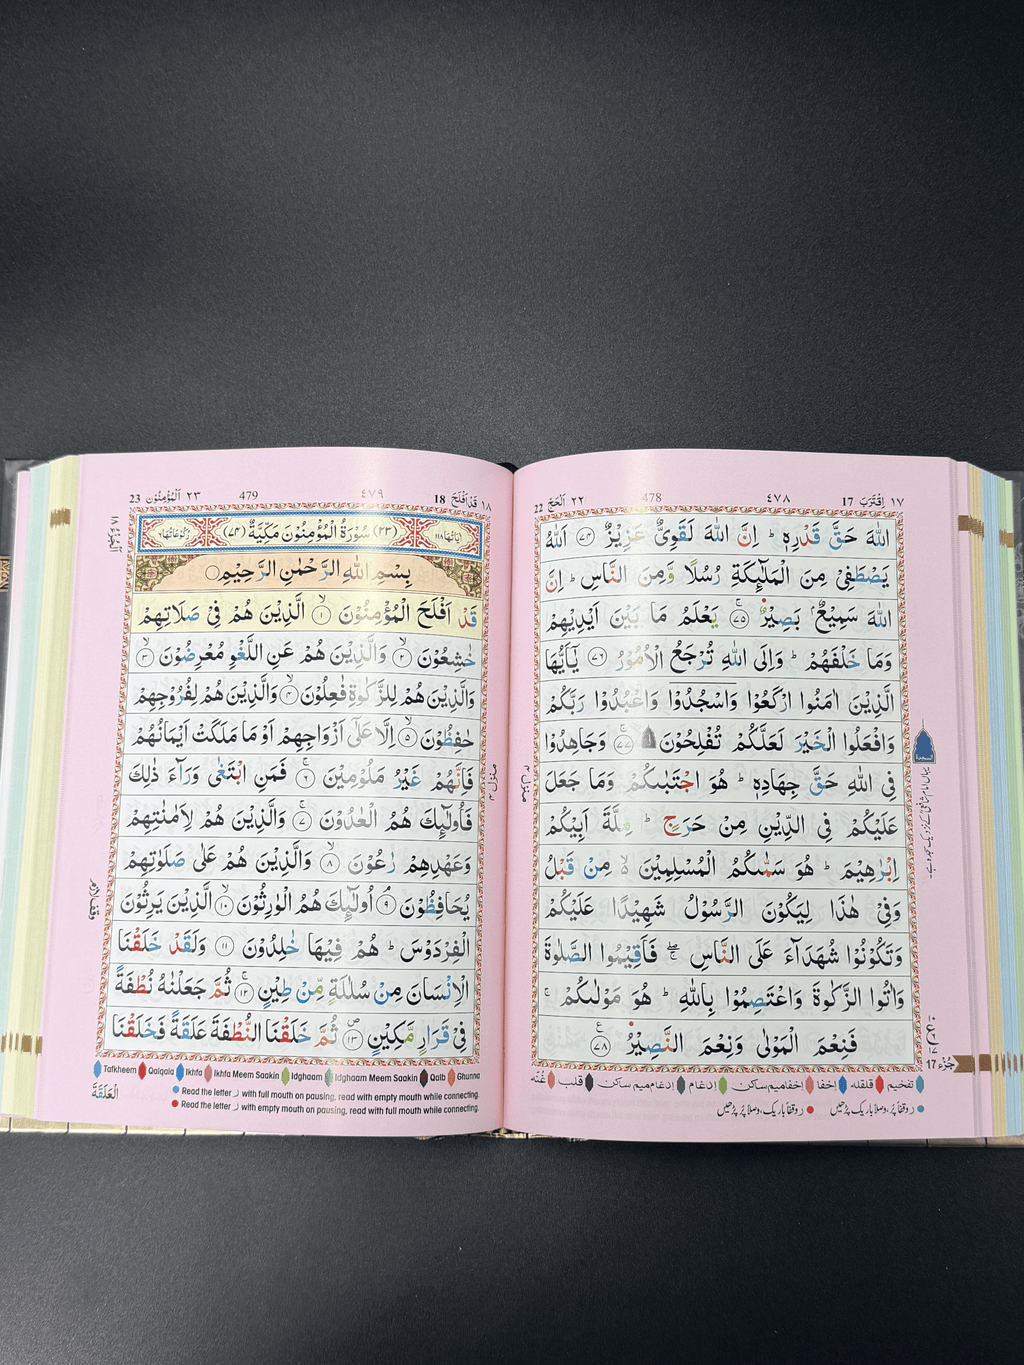 ١٧ اِقْتَرَبَ 17
٤٧٨
478
٢٢ اَلْحَجّ 22
اللّٰهَ حَقَّ قَدْرِهٖ ؕ اِنَّ اللّٰهَ لَقَوِىٌّ عَزِيْزٌ ﴿٧٤﴾ اَللّٰهُ
يَصْطَفِىْ مِنَ الْمَلٰٓئِكَةِ رُسُلًا وَّمِنَ النَّاسِ ؕ اِنَّ
اللّٰهَ سَمِيْعٌۢ بَصِيْرٌ ۚ﴿٧٥﴾ يَعْلَمُ مَا بَيْنَ اَيْدِيْهِمْ
وَمَا خَلْفَهُمْ ؕ وَاِلَى اللّٰهِ تُرْجَعُ الْاُمُوْرُ ﴿٧٦﴾ يٰۤاَيُّهَا
الَّذِيْنَ اٰمَنُوا ارْكَعُوْا وَاسْجُدُوْا وَاعْبُدُوْا رَبَّكُمْ
وَافْعَلُوا الْخَيْرَ لَعَلَّكُمْ تُفْلِحُوْنَ ۩ ۚ﴿٧٧﴾ وَجَاهِدُوْا
فِى اللّٰهِ حَقَّ جِهَادِهٖ ؕ هُوَ اجْتَبٰىكُمْ وَمَا جَعَلَ
عَلَيْكُمْ فِى الدِّيْنِ مِنْ حَرَجٍ ؕ مِلَّةَ اَبِيْكُمْ
اِبْرٰهِيْمَ ؕ هُوَ سَمّٰىكُمُ الْمُسْلِمِيْنَ ۙ مِنْ قَبْلُ
وَفِىْ هٰذَا لِيَكُوْنَ الرَّسُوْلُ شَهِيْدًا عَلَيْكُمْ
وَتَكُوْنُوْا شُهَدَآءَ عَلَى النَّاسِ ۖۚ فَاَقِيْمُوا الصَّلٰوةَ
وَاٰتُوا الزَّكٰوةَ وَاعْتَصِمُوْا بِاللّٰهِ ؕ هُوَ مَوْلٰىكُمْ ۚ
فَنِعْمَ الْمَوْلٰى وَنِعْمَ النَّصِيْرُ ﴿٧٨﴾
جُزْء 17
تفخیم قلقلہ اِخفا اخفامیم ساکن اِدغام ادغام میم ساکن قلب غُنّہ
ر وقفاً پُر، وصلاً باریک پڑھیں ر وقفاً باریک، وصلاً پُر پڑھیں
منزل ٤
١٨ قَدْ اَفْلَحَ 18
٤٧٩
479
٢٣ اَلْمُؤْمِنُوْن 23
اٰيَاتُهَا ١١٨ (٢٣) سُوْرَةُ الْمُؤْمِنُوْنَ مَكِّيَّةٌ (٧٤) رُكُوْعَاتُهَا ٦
بِسْمِ اللّٰهِ الرَّحْمٰنِ الرَّحِيْمِ
قَدْ اَفْلَحَ الْمُؤْمِنُوْنَ ۙ﴿١﴾ الَّذِيْنَ هُمْ فِىْ صَلَاتِهِمْ
خٰشِعُوْنَ ۙ﴿٢﴾ وَالَّذِيْنَ هُمْ عَنِ اللَّغْوِ مُعْرِضُوْنَ ۙ﴿٣﴾
وَالَّذِيْنَ هُمْ لِلزَّكٰوةِ فٰعِلُوْنَ ۙ﴿٤﴾ وَالَّذِيْنَ هُمْ لِفُرُوْجِهِمْ
حٰفِظُوْنَ ۙ﴿٥﴾ اِلَّا عَلٰٓى اَزْوَاجِهِمْ اَوْ مَا مَلَكَتْ اَيْمَانُهُمْ
فَاِنَّهُمْ غَيْرُ مَلُوْمِيْنَ ۚ﴿٦﴾ فَمَنِ ابْتَغٰى وَرَآءَ ذٰلِكَ
فَاُولٰٓئِكَ هُمُ الْعٰدُوْنَ ۚ﴿٧﴾ وَالَّذِيْنَ هُمْ لِاَمٰنٰتِهِمْ
وَعَهْدِهِمْ رٰعُوْنَ ۙ﴿٨﴾ وَالَّذِيْنَ هُمْ عَلٰى صَلَوٰتِهِمْ
يُحَافِظُوْنَ ۘ﴿٩﴾ اُولٰٓئِكَ هُمُ الْوٰرِثُوْنَ ۙ﴿١٠﴾ الَّذِيْنَ يَرِثُوْنَ
الْفِرْدَوْسَ ؕ هُمْ فِيْهَا خٰلِدُوْنَ ﴿١١﴾ وَلَقَدْ خَلَقْنَا
الْاِنْسَانَ مِنْ سُلٰلَةٍ مِّنْ طِيْنٍ ۚ﴿١٢﴾ ثُمَّ جَعَلْنٰهُ نُطْفَةً
فِىْ قَرَارٍ مَّكِيْنٍ ۪﴿١٣﴾ ثُمَّ خَلَقْنَا النُّطْفَةَ عَلَقَةً فَخَلَقْنَا
الْجُزْءُ ١٨
منزل ٤
الْعَلَقَةَ
Tafkheem Qalqala Ikhfa Ikhfa Meem Saakin Idghaam Idghaam Meem Saakin Qalb Ghunna
Read the letter ر with full mouth on pausing, read with empty mouth while connecting.
Read the letter ر with empty mouth on pausing, read with full mouth while connecting.